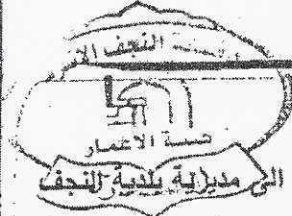 النجف
الاعمار
الى مديرية بلدية النجف